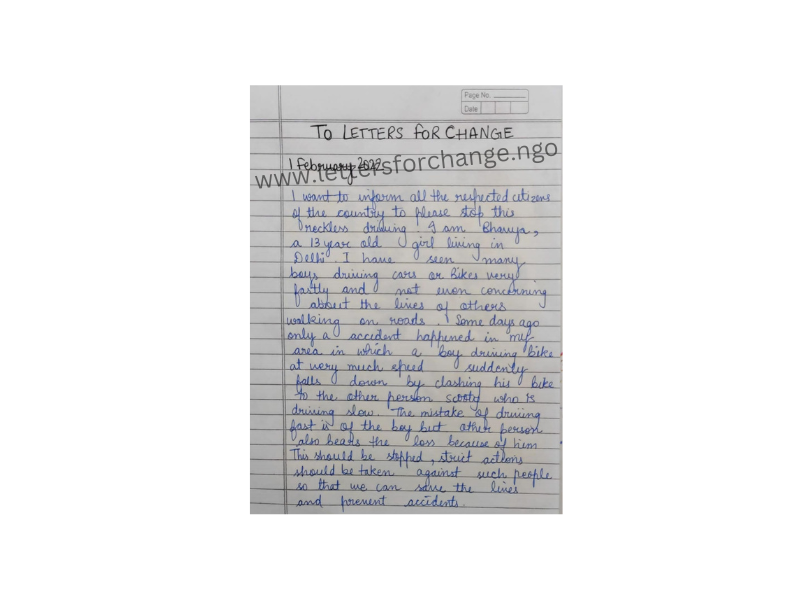 Page No.
Date
To LETTERS FOR CHANGE
1 February 2022
www.lettersforchange.ngo
I want to inform all the respected citizens
of the country to please stop this
reckless driving. I am Bhavya,
a 13 year old girl living in
Delhi. I have seen many
boys driving cars or bikes very
fastly and not even concerning
about the lives of others
walking on roads. Some days ago
only a accident happened in my
area in which a boy driving bike
at very much speed suddenly
falls down by clashing his bike
to the other person scooty who is
driving slow. The mistake of driving
fast is of the boy but other person
also bears the loss because of him
This should be stopped, strict actions
should be taken against such people
so that we can save the lives
and prevent accidents.